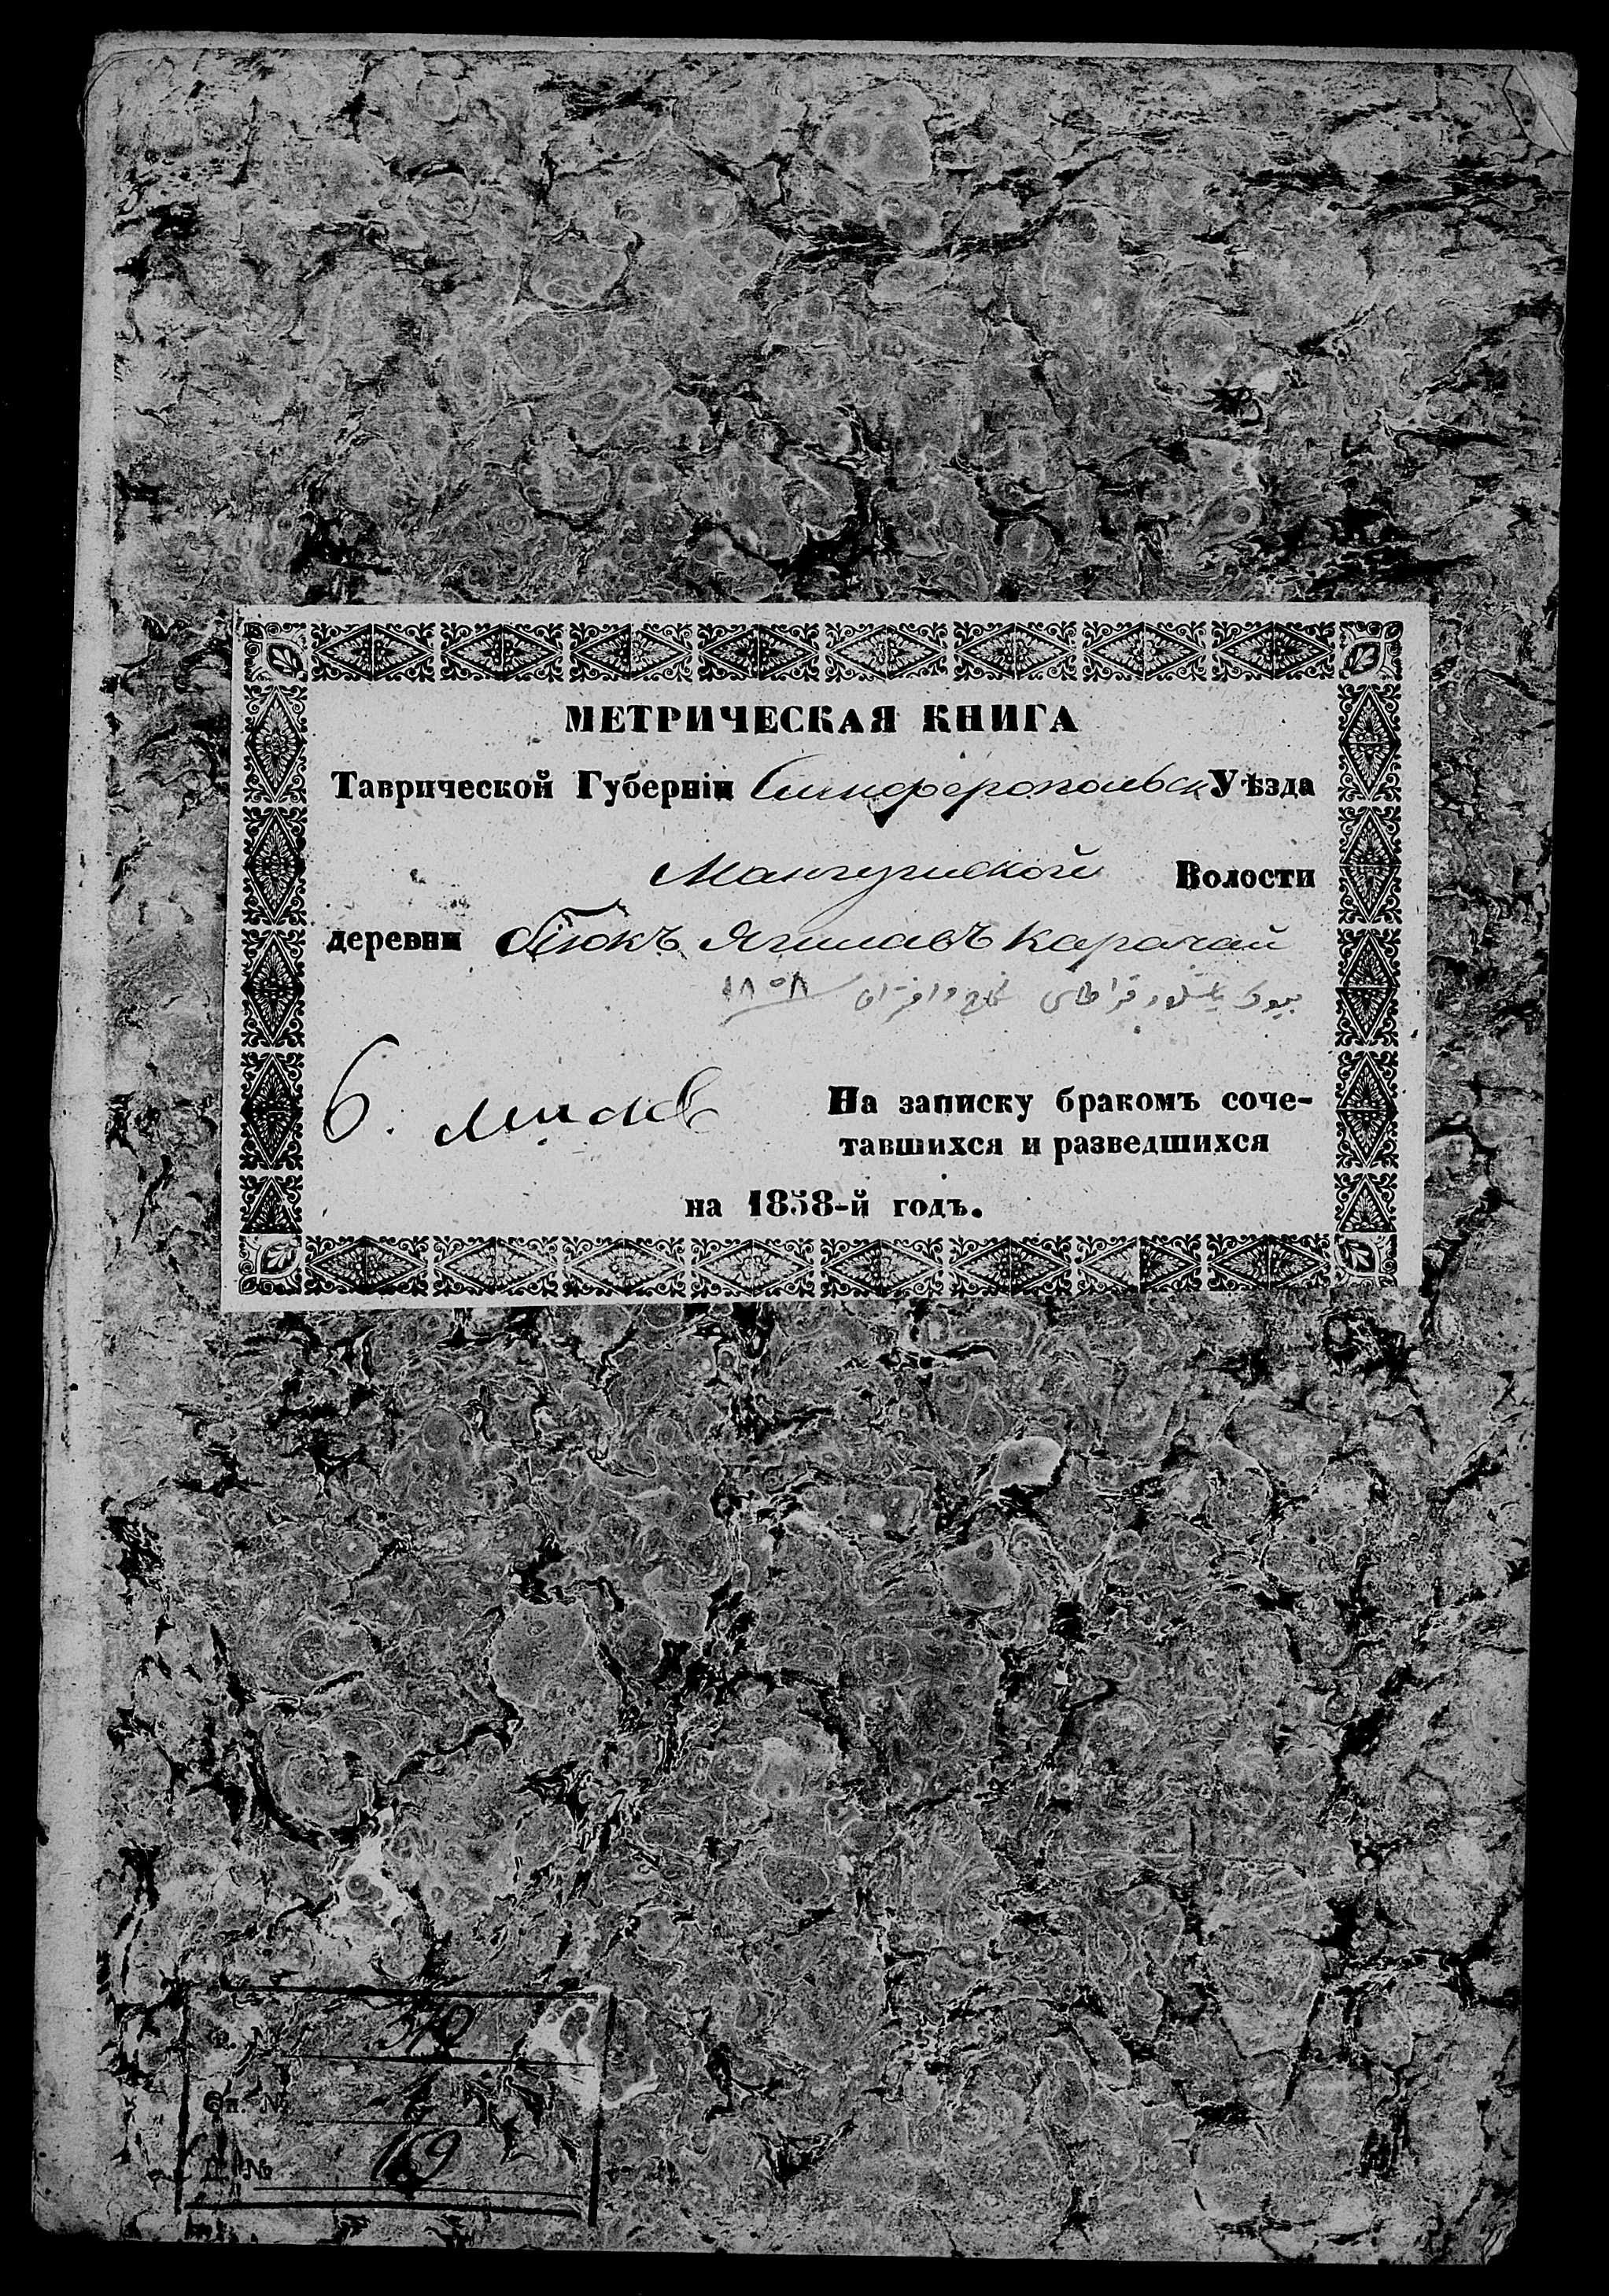 13
МЕТРИЧЕСКАЯ КНИГА
Таврической Губерніи Симферопольск Уѣзда
Мангушской Волости
деревни Бiюкъ Яшлавъ Карачай
١٨٥٨
6. листов
На записку бракомъ соче-
тавшихся и разведшихся
на 1858-й годъ.
Ф. №
Оп. №
Д. № 169